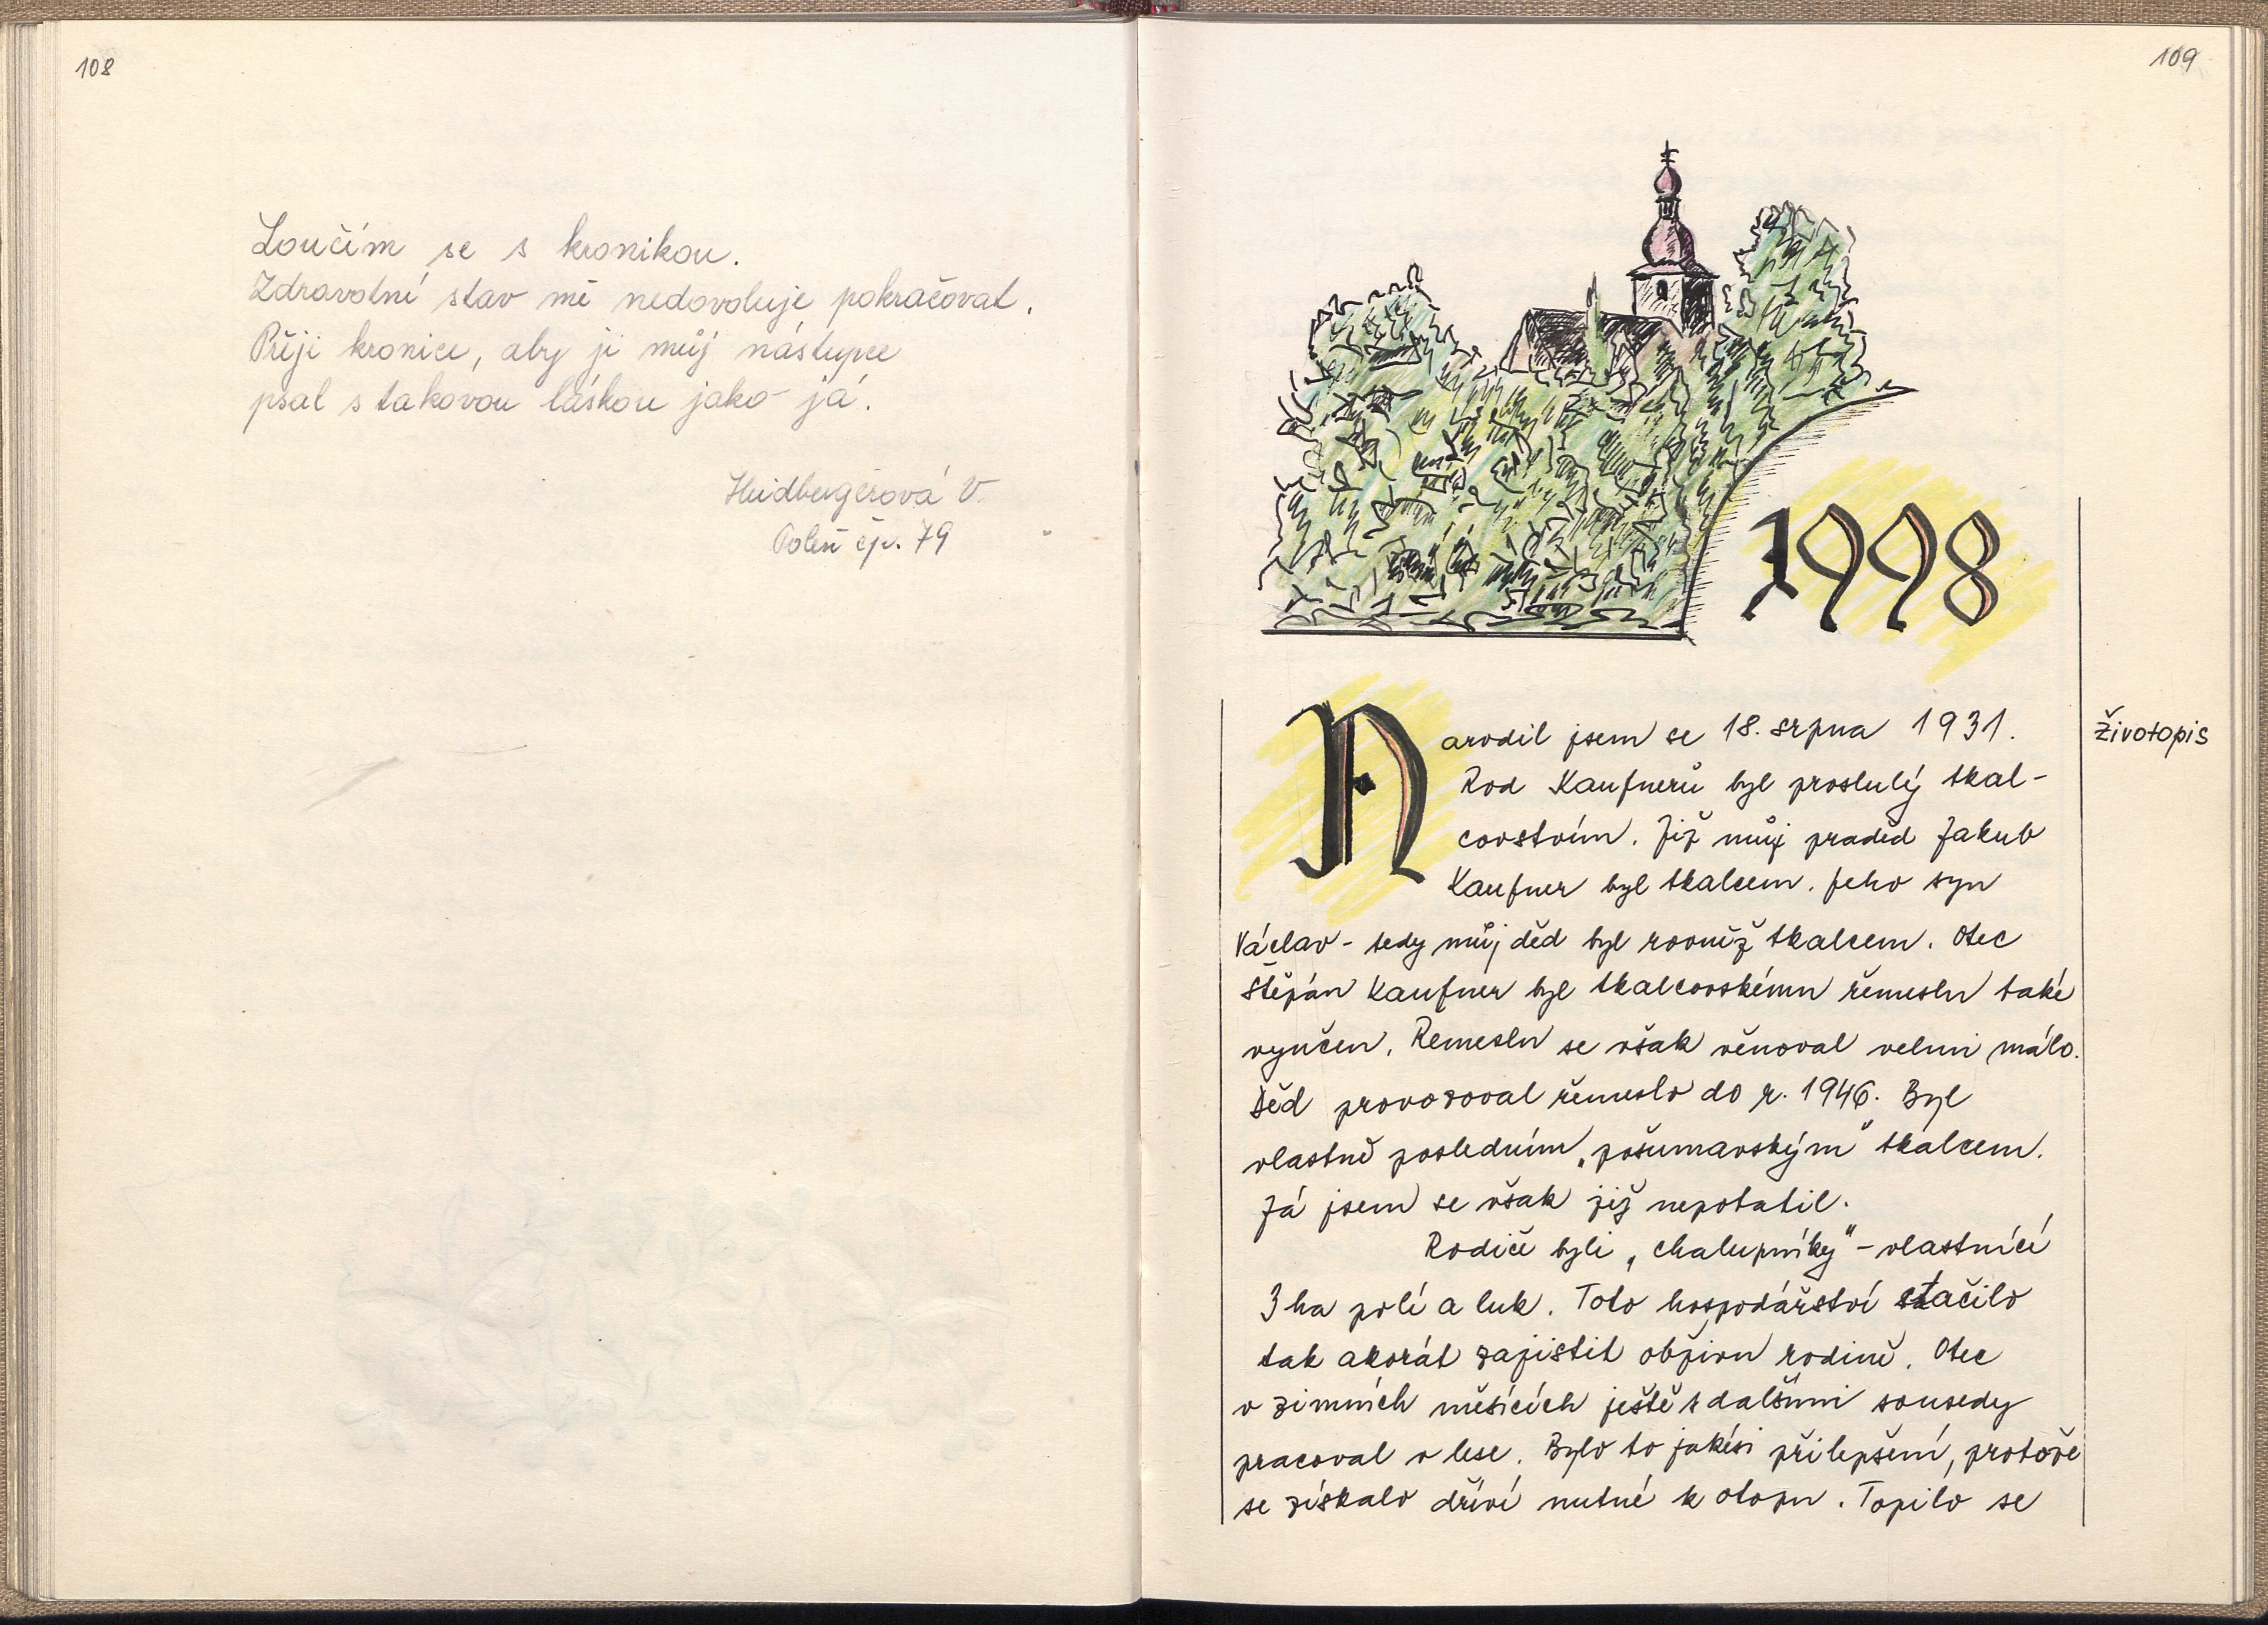 108
Loučím se s kronikou.
Zdravotní stav mě nedovoluje pokračovat.
Přeji kronice, aby ji můj nástupce
psal s takovou láskou jako já.
Heidbergerová V.
Poleň čp. 79
109
1998
Narodil jsem se 18. srpna 1931.
životopis
Rod Kaufnerů byl proslulý tkal-
covstvím. Již můj praděd Jakub
Kaufner byl tkalcem. Jeho syn
Václav - tedy můj děd byl rovněž tkalcem. Otec
Štěpán Kaufner byl tkalcovskému řemeslu také
vyučen. Řemeslu se však věnoval velmi málo.
Děd provozoval řemeslo do r. 1946. Byl
vlastně posledním „pošumavským" tkalcem.
Já jsem se však již nepotatil.
Rodiče byli „chalupníky" - vlastnící
3 ha polí a luk. Toto hospodářství stačilo
tak akorát zajistit obživu rodině. Otec
v zimních měsících ještě s dalšími sousedy
pracoval v lese. Bylo to jakési přilepšení, protože
se získalo dříví nutné k otopu. Topilo se